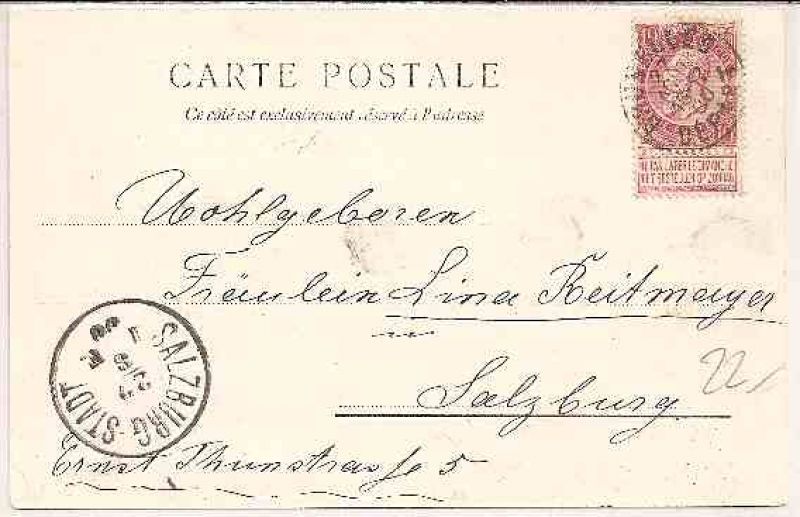 CARTE POSTALE
Ce côté est exclusivement réservé à l'adresse
NE PAS LIVRER LE DIMANCHE
NIET BESTELLEN OP ZONDAG
Wohlgeboren
Fräulein Lina Reitmayer
Salzburg
22
SALZBURG-STADT
Ernst Thunstrasse 5